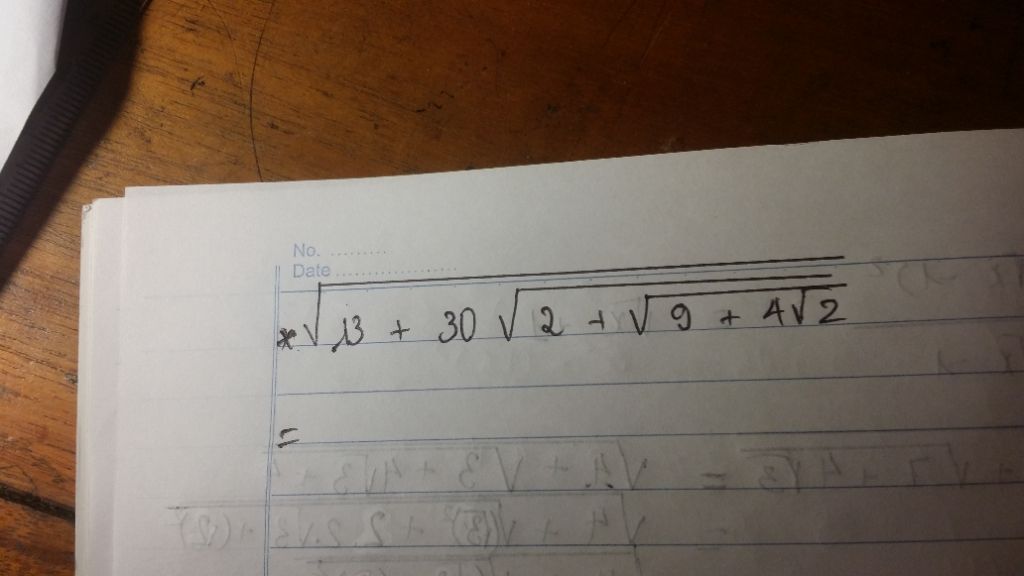 No. ..........
Date ....................
* √(13 + 30 √(2 + √(9 + 4√2)))
=